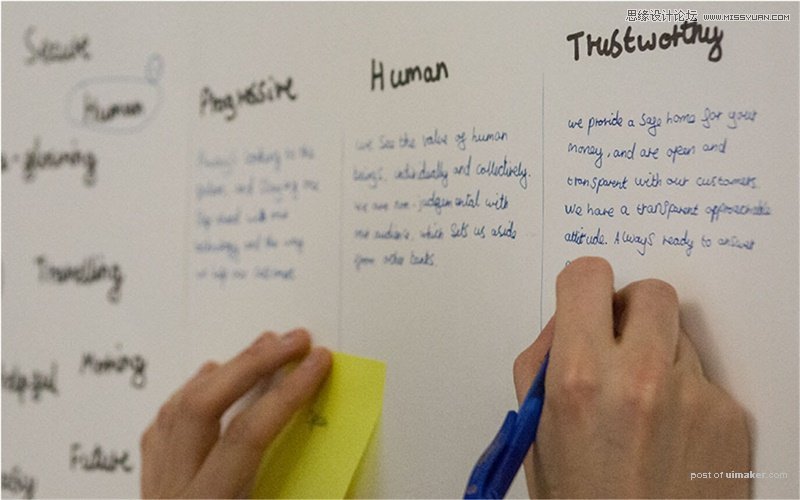 思缘设计论坛 WWW.MISSYUAN.COM
Secure
Human
Travelling
Helpful
Moving
Future
Progressive
Always looking to the
future, and staying one
step ahead with our
technology and the way
we help our customers
Human
we see the value of human
beings, individually and collectively.
we are non-judgemental with
our audience, which sets us aside
from other banks.
Trustworthy
we provide a safe home for your
money, and are open and
transparent with our customers.
We have a transparent approachable
attitude. Always ready to answer
post of uimaker.com